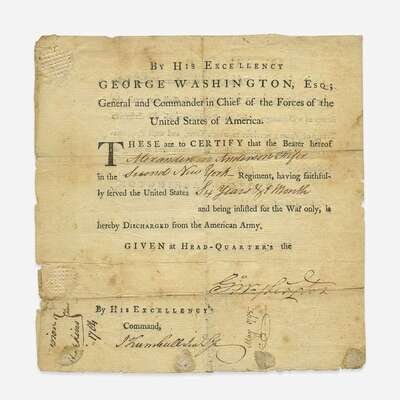 By His Excellency
GEORGE WASHINGTON, Esq;
General and Commander in Chief of the Forces of the
United States of America.
THESE are to CERTIFY that the Bearer hereof
Anderson Fifer
in the Second New York Regiment, having faithful-
ly served the United States
Years & Month
and being inlisted for the War only, is
hereby Discharged from the American Army.
Given at Head-Quarters the
By His Excellency's
Command,
J Trumbull
1784